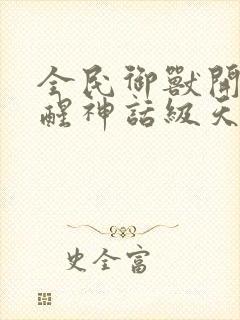 全民御獸開
醒神話級天
史全富